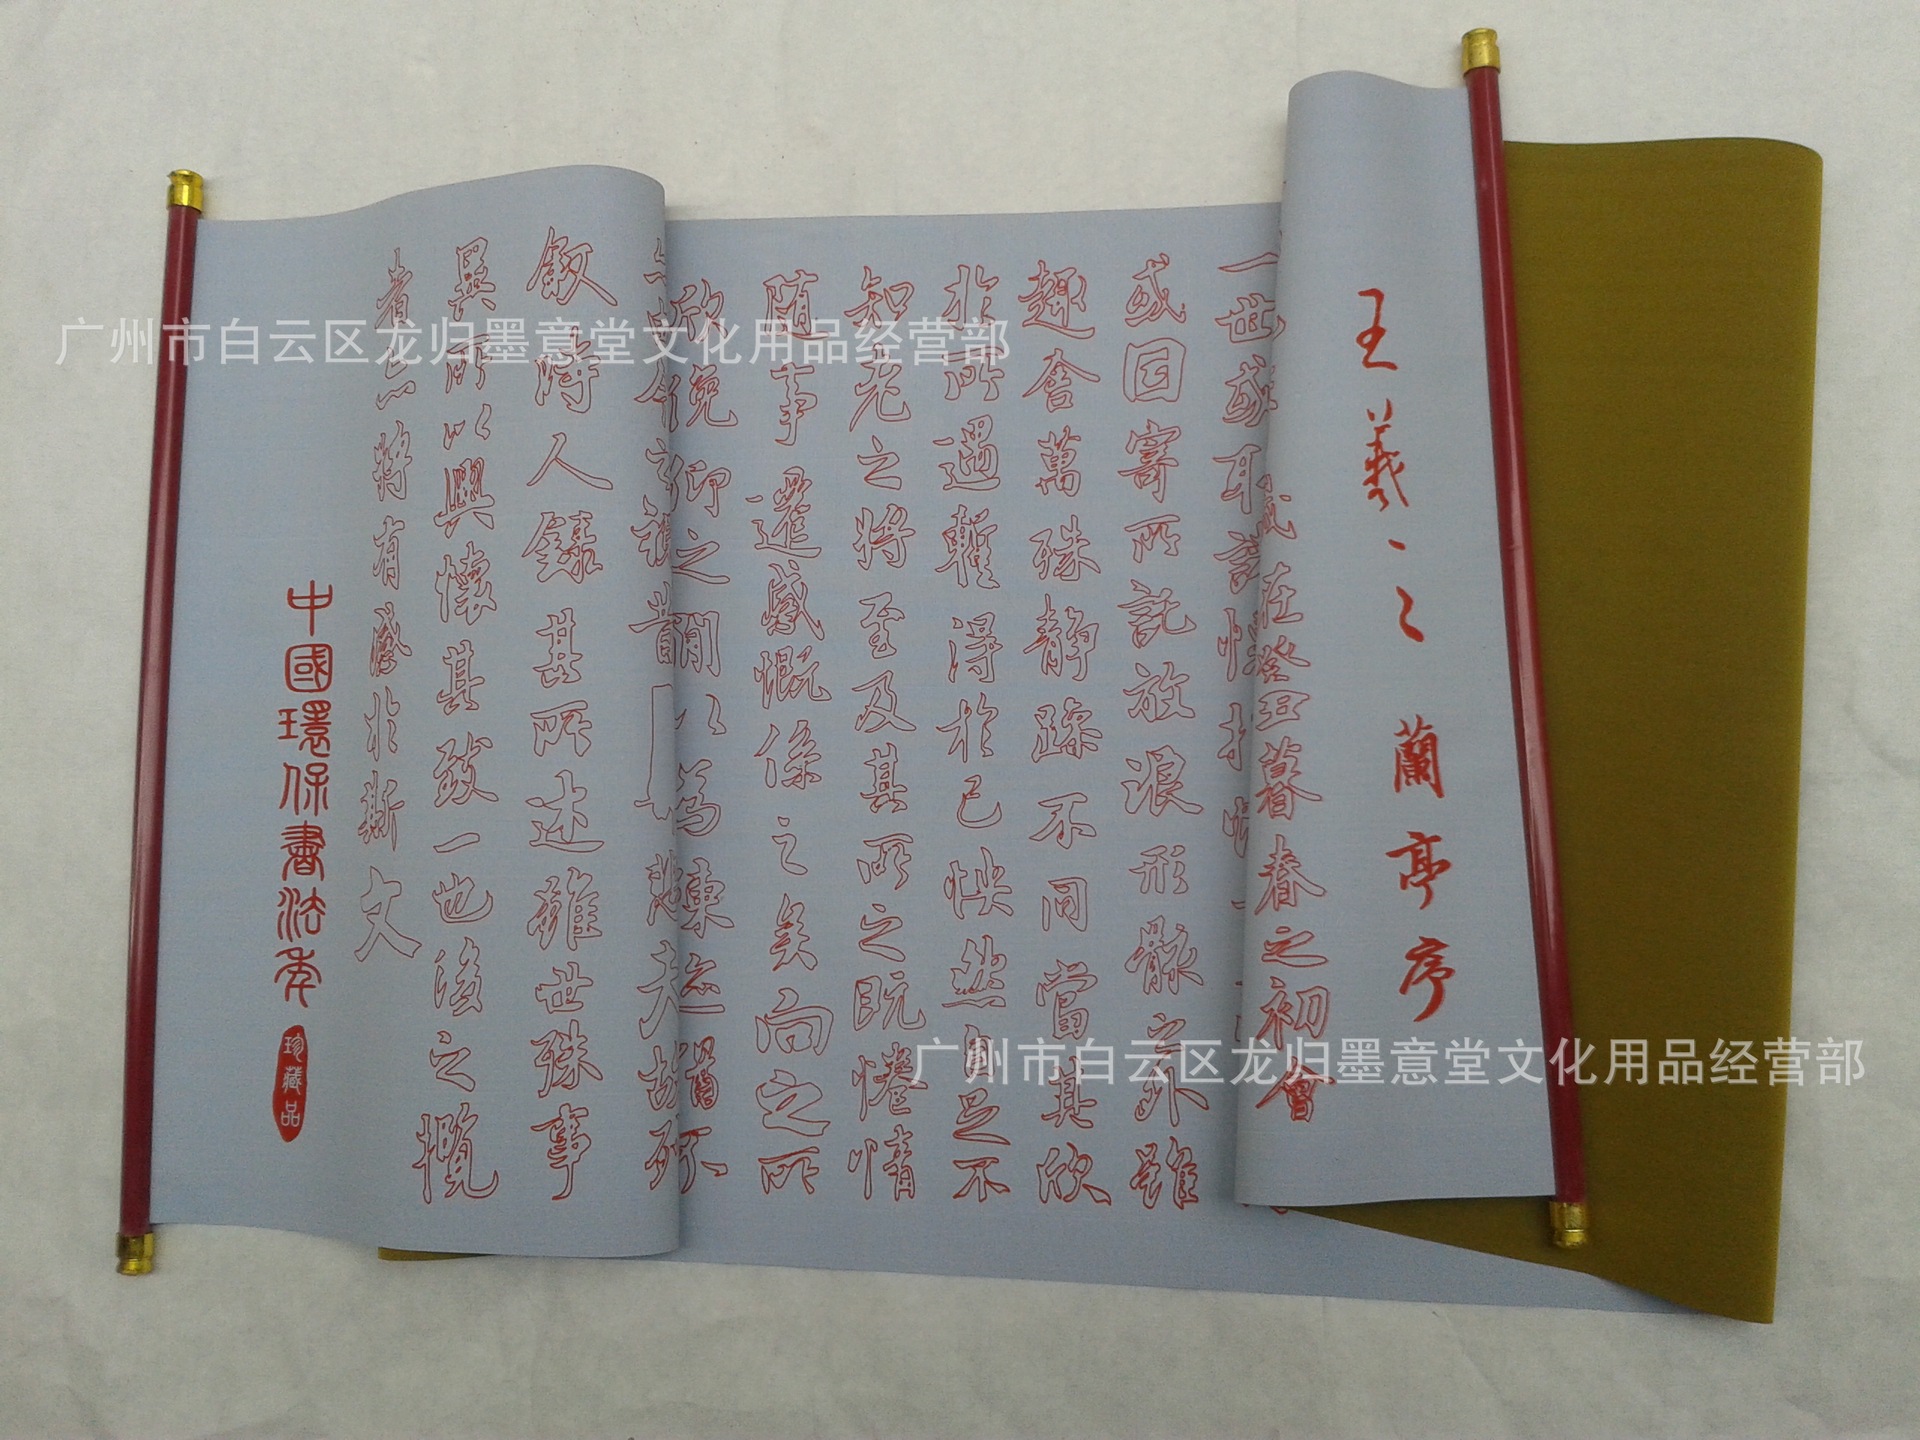 王羲之蘭亭序
歲在癸丑暮春之初會
一世或取諸懷抱悟
或因寄所託放浪形骸之外雖
趣舍萬殊静躁不同當其欣
於所遇暫得於己怏然自足不
知老之將至及其所之既惓情
随事遷感慨係之矣向之所
欣俛仰之間以為陳迹猶不
夫故列
叙時人錄其所述雖世殊事
異所以興懷其致一也後之攬
者亦將有感於斯文
中國環保書法秀
珍藏品
广州市白云区龙归墨意堂文化用品经营部
广州市白云区龙归墨意堂文化用品经营部